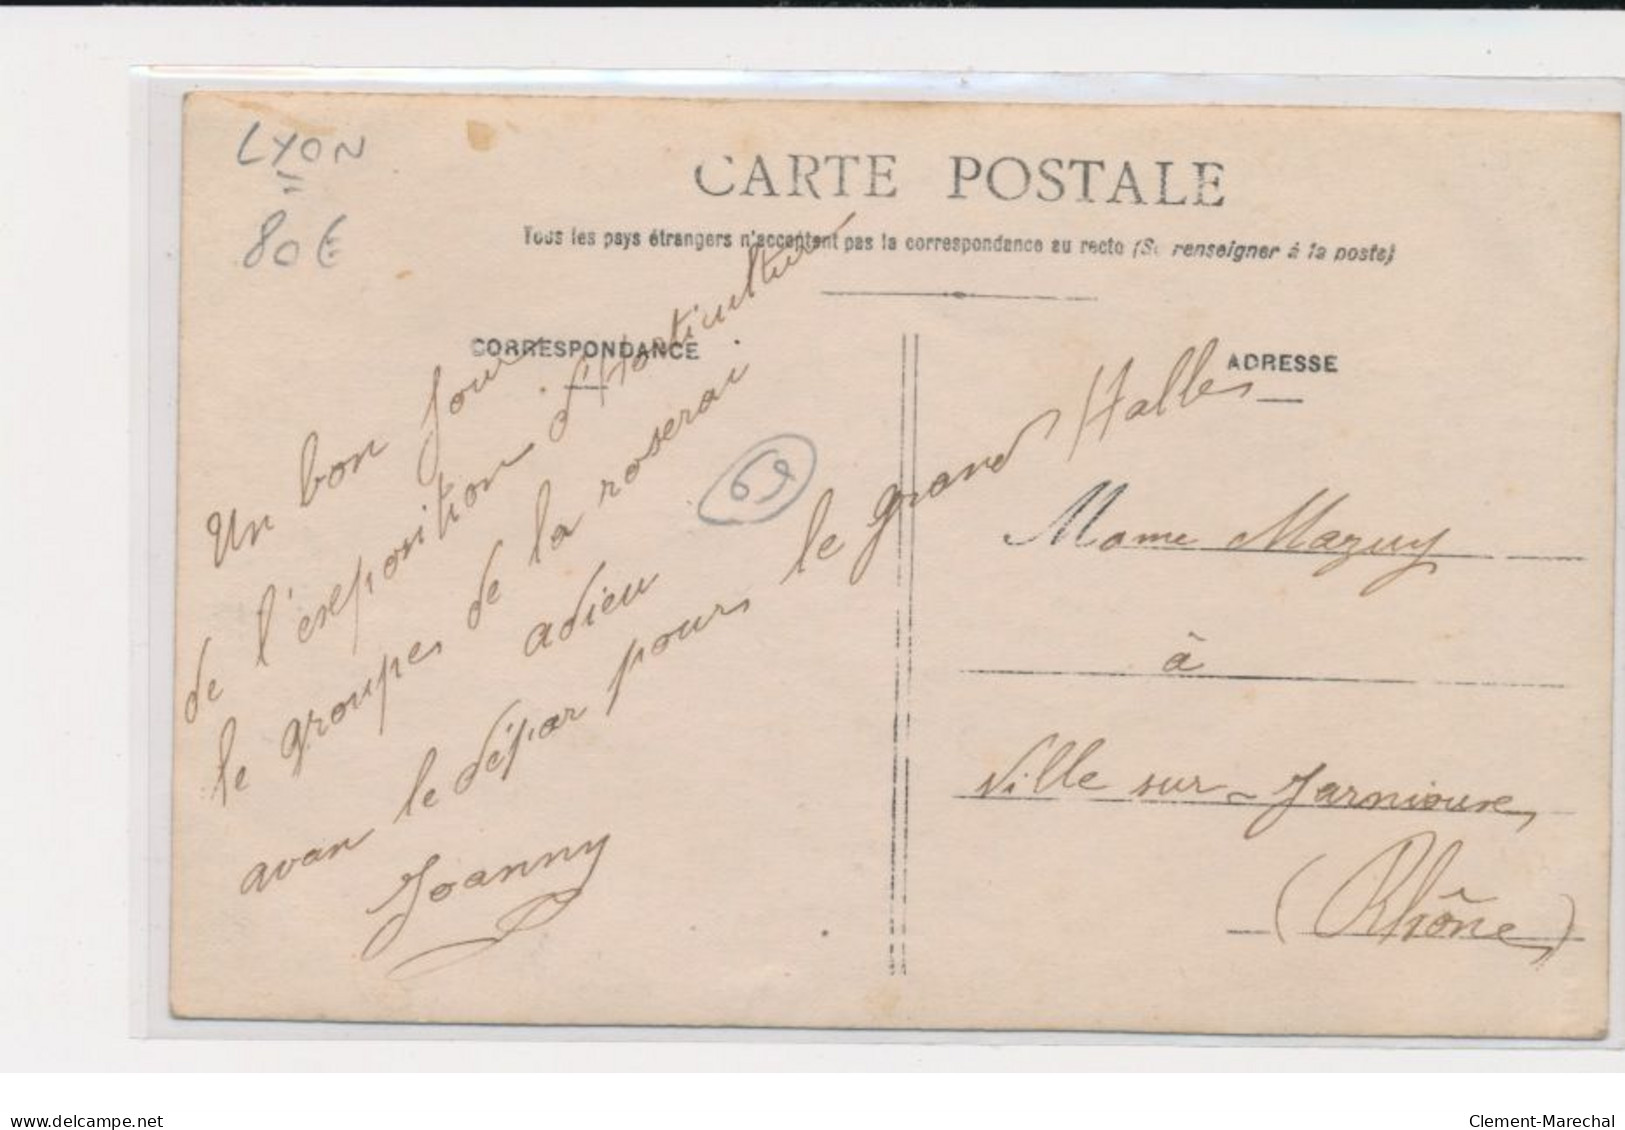 LYON
80€
CARTE POSTALE
Tous les pays étrangers n'acceptent pas la correspondance au recto (Se renseigner à la poste)
CORRESPONDANCE
ADRESSE
Un bon jour
de l'exposition d'Horticulture
le groupes de la roserai
adieu
avan le dépar pours le grand Halles
Joanny
69
Mame Mazuy
à
Ville sur-Jarnioux
(Rhône)
www.delcampe.net
Clement-Marechal